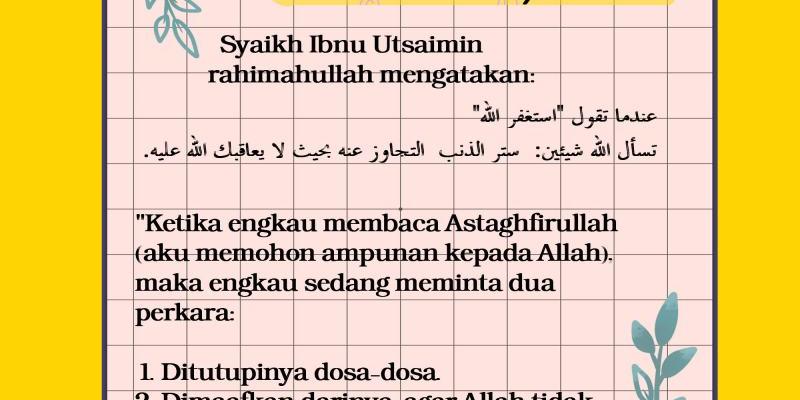 Syaikh Ibnu Utsaimin
rahimahullah mengatakan:
عندما تقول "استغفر الله"
تسأل الله شيئين: ستر الذنب التجاوز عنه بحيث لا يعاقبك الله عليه.
"Ketika engkau membaca Astaghfirullah
(aku memohon ampunan kepada Allah).
maka engkau sedang meminta dua
perkara:
1. Ditutupinya dosa-dosa.
2. Dimaafkan darinya, agar Allah tidak